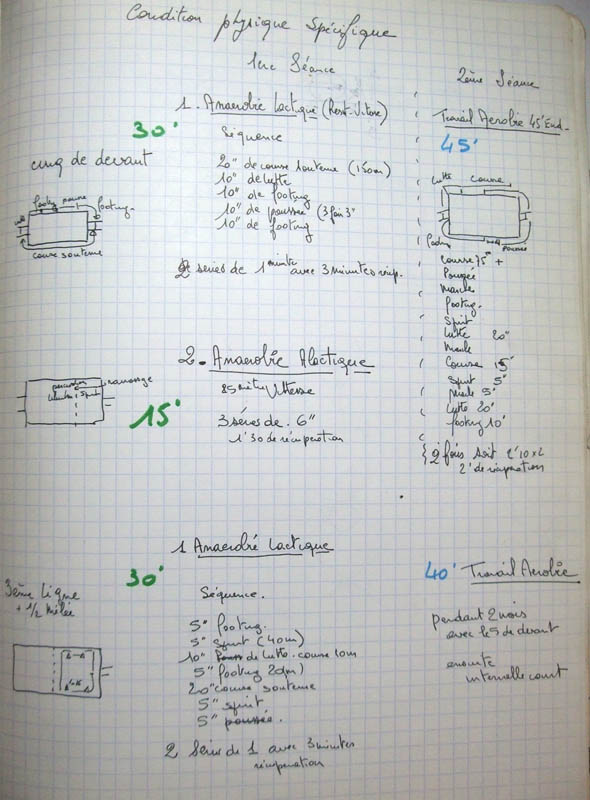 Condition physique Spécifique
1ère Séance
2ème Séance
1. Anaerobie Lactique (Resist-Vitesse)
30'
Séquence
cinq de devant
20" de course soutenue (150m)
10" de lutte
10" de footing
10" de poussée (3 fois 3")
10" de footing
footing course
footing
course soutenue
2 séries de 1 minute avec 3 minutes récup.
Travail Aerobie 45' End.
45'
lutte course
course 75m +
Poussée
Marche
footing.
Sprint
lutte 20"
Marche
Course 15'
Sprint 5"
Marche 5'
lutte 20'
footing 10'
2 fois soit 2'10 x 2
2' de récupération
2. Anaerobie Alactique
15'
25 mètres Vitesse
3 séries de 6"
1'30 de récupération
ramassage
percussion
1 Anaerobie Lactique
30'
3ème Ligne
+ 1/2 Mêlée
Séquence.
5" footing.
5" Sprint (40m)
10" de lutte. course 10m
5" footing 20m)
20" course soutenue
5" sprint
5" poussée.
2 Séries de 1 avec 3 minutes
récupération
40' Travail Aerobie
pendant 2 mois
avec le 5 de devant
ensuite
intervalle court